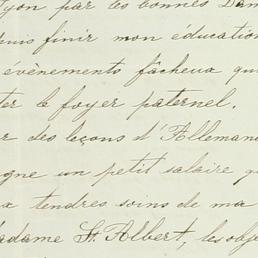 Lyon par les bonnes Dam
puis finir mon éducation
évènements fâcheux qui
ter le foyer paternel.
r des leçons d'Allemand
agne un petit salaire q
x tendres soins de ma
adame St. Albert, les obj